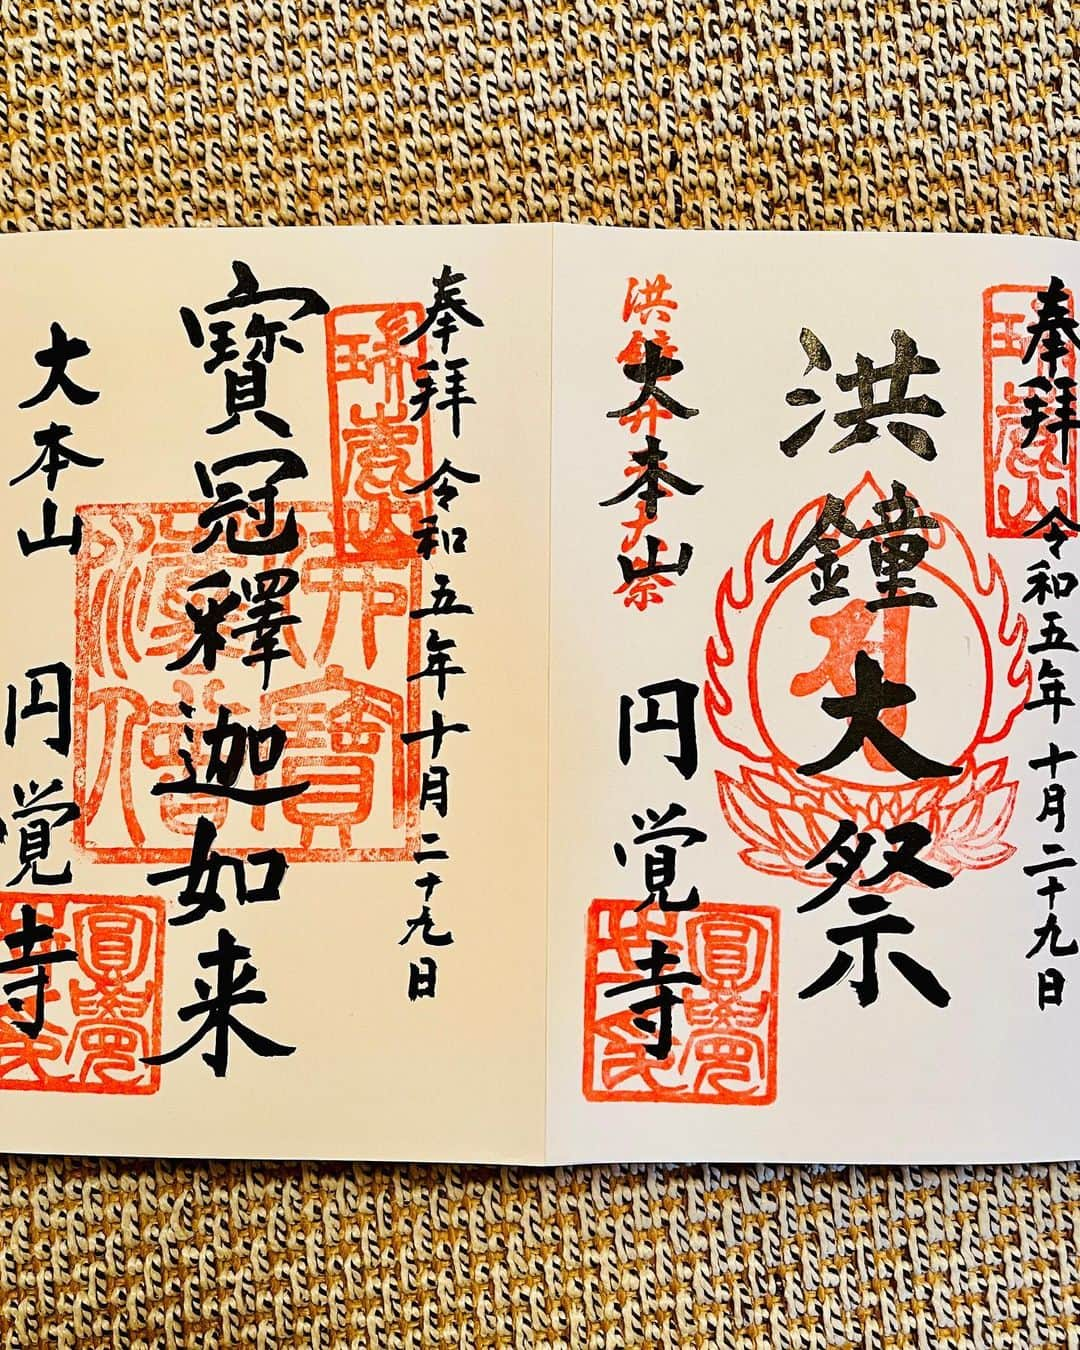 奉拝 令和五年十月二十九日
洪鐘大祭
大本山 円覚寺
圓覺
奉拝 令和五年十月二十九日
寶冠釋迦如来
大本山 円覚寺
圓覺